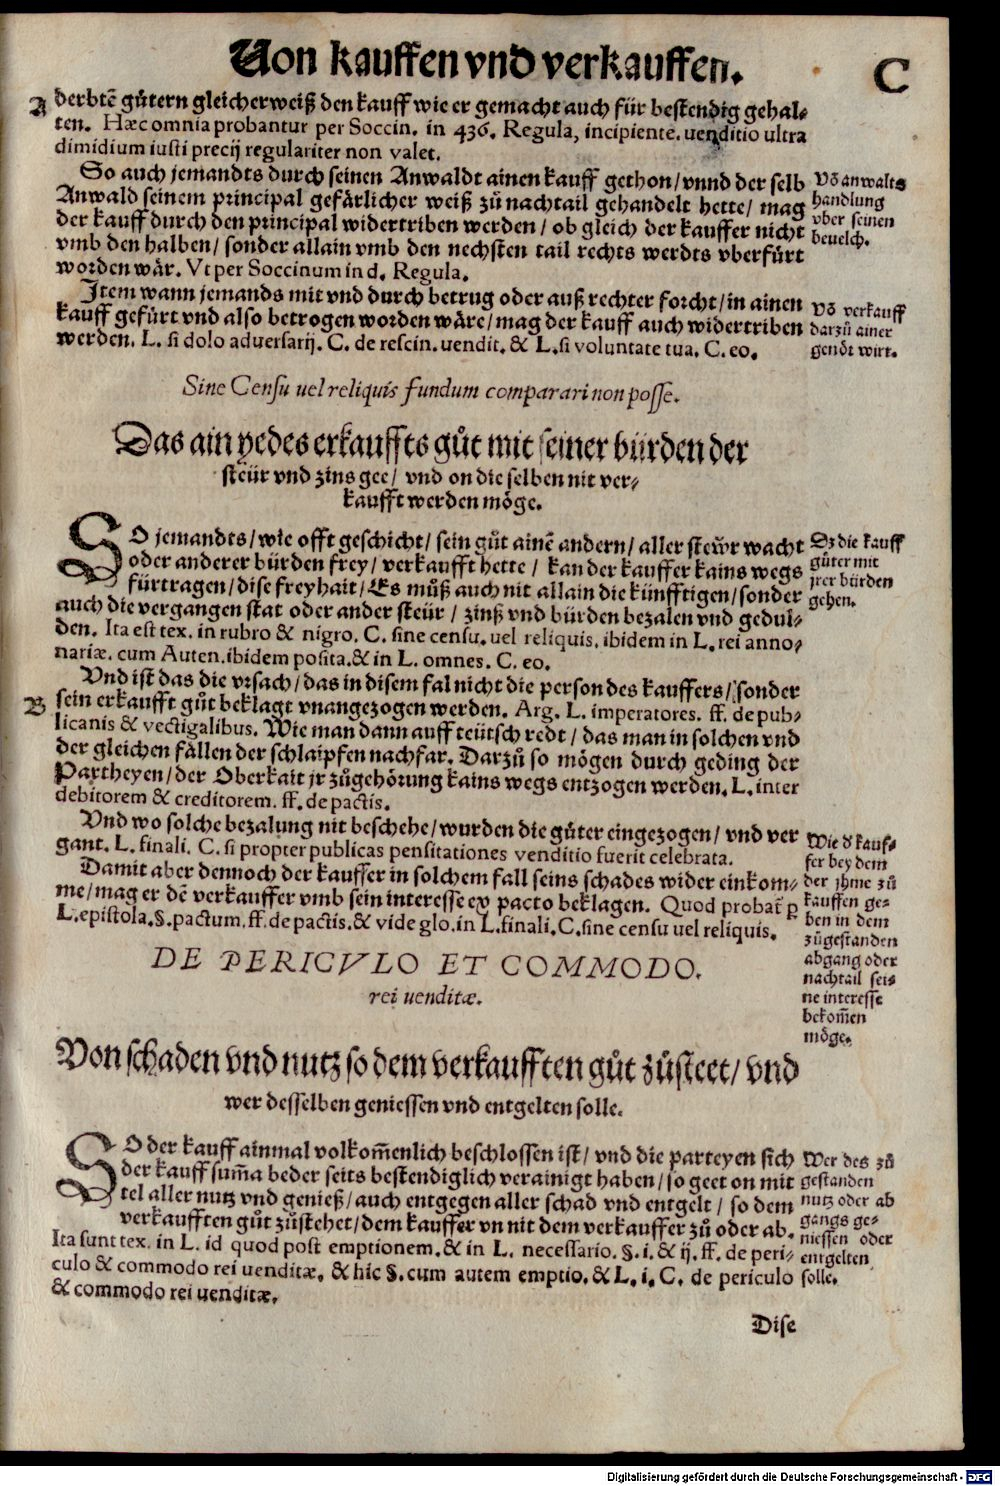 Von kauffen vnd verkauffen.
C
A
derbtẽ gůtern gleicherweiß den kauff wie er gemacht auch für bestendig gehal-
ten. Hæc omnia probantur per Soccin. in 436. Regula, incipiente. uenditio ultra
dimidium iusti precij regulariter non valet.
So auch jemandts durch seinen Anwaldt ainen kauff gethon/ vnnd der selb
Anwald seinem principal gefärlicher weiß zů nachtail gehandelt hette/ mag
der kauff durch den principal widertriben werden/ ob gleich der kauffer nicht
vmb den halben/ sonder allain vmb den nechsten tail rechts werdts vberfürt
worden wär. Vt per Soccinum in d. Regula.
Võ anwalts
handlung
vber seinen
beuelch.
Jtem wann jemands mit vnd durch betrug oder auß rechter forcht/ in ainen
kauff gefürt vnd also betrogen worden wäre/ mag der kauff auch widertriben
werden. L. si dolo adversarij. C. de rescin. uendit. & L. si voluntate tua. C. eo.
Võ verkauff
darzů ainer
genöt wirt.
Sine Censu uel reliquis fundum comparari non posse.
Das ain yedes erkauffts gůt mit seiner bürden der
steür vnd zins gee/ vnd on die selben nit ver-
kaufft werden möge.
SO jemandts/ wie offt geschicht/ sein gůt ainẽ andern/ aller stewr wacht
oder anderer bürden frey/ verkaufft hette/ kan der kauffer kains wegs
fürtragen/ dise freyhait/ Es můß auch nit allain die künfftigen/ sonder
auch die vergangen stat oder ander steür/ zinß vnd bürden bezalen vnd gedul-
den. Ita est tex. in rubro & nigro. C. sine censu. uel reliquis. ibidem in L. rei anno-
nariæ. cum Auten. ibidem posita. & in L. omnes. C. eo.
Dz die kauff
güter mit
jrer bürden
gehen.
Vnd ist das die vrsach/ das in disem fal nicht die person des kauffers/ sonder
B
sein erkaufft gůt beklagt vnangezogen werden. Arg. L. imperatores. ff. de pub-
licanis & vectigalibus. Wie man dann auff teütsch redt/ das man in solchen vnd
der gleichen fällen der schlaipfen nachfar. Darzů so mögen durch geding der
Partheyen/ der Oberkait jr zůgehörung kains wegs entzogen werden. L. inter
debitorem & creditorem. ff. de pactis.
Vnd wo solche bezalung nit beschehe/ wurden die gůter eingezogen/ vnd ver
gant. L. finali. C. si propter publicas pensitationes venditio fuerit celebrata.
Damit aber dennoch der kauffer in solchem fall seins schades wider einkom-
me/ mag er dẽ verkauffer vmb sein interesse ex pacto beklagen. Quod probat̃ p
L. epistola. §. pactum. ff. de pactis. & vide glo. in L. finali. C. sine censu uel reliquis.
Wie d̕ kauf-
fer bey dem
der jhme zů
kauffen ge-
ben in dem
zůgestanden
abgang oder
nachtail sei-
ne interesse
bekom̃en
möge.
DE PERICVLO ET COMMODO.
rei uenditæ.
Von schaden vnd nutz so dem verkaufften gůt zůsteet/ vnd
wer desselben geniessen vnd entgelten solle.
SO der kauff ainmal volkom̃enlich beschlossen ist/ vnd die parteyen sich
der kauff sum̃a beder seits bestendiglich verainigt haben/ so geet on mit
tel aller nutz vnd genieß/ auch entgegen aller schad vnd entgelt/ so dem
verkaufften gůt zůstehet/ dem kauffer vn nit dem verkauffer zů oder ab.
Ita sunt tex. in L. id quod post emptionem. & in L. necessario. §. i. & ij. ff. de peri-
culo & commodo rei uenditæ. & hic §. cum autem emptio. & L. i. C. de periculo
& commodo rei uenditæ.
Wer des zů
gestanden
nutz oder ab
gangs ge-
niessen oder
entgelten
solle.
Dise
Digitalisierung gefördert durch die Deutsche Forschungsgemeinschaft - DFG